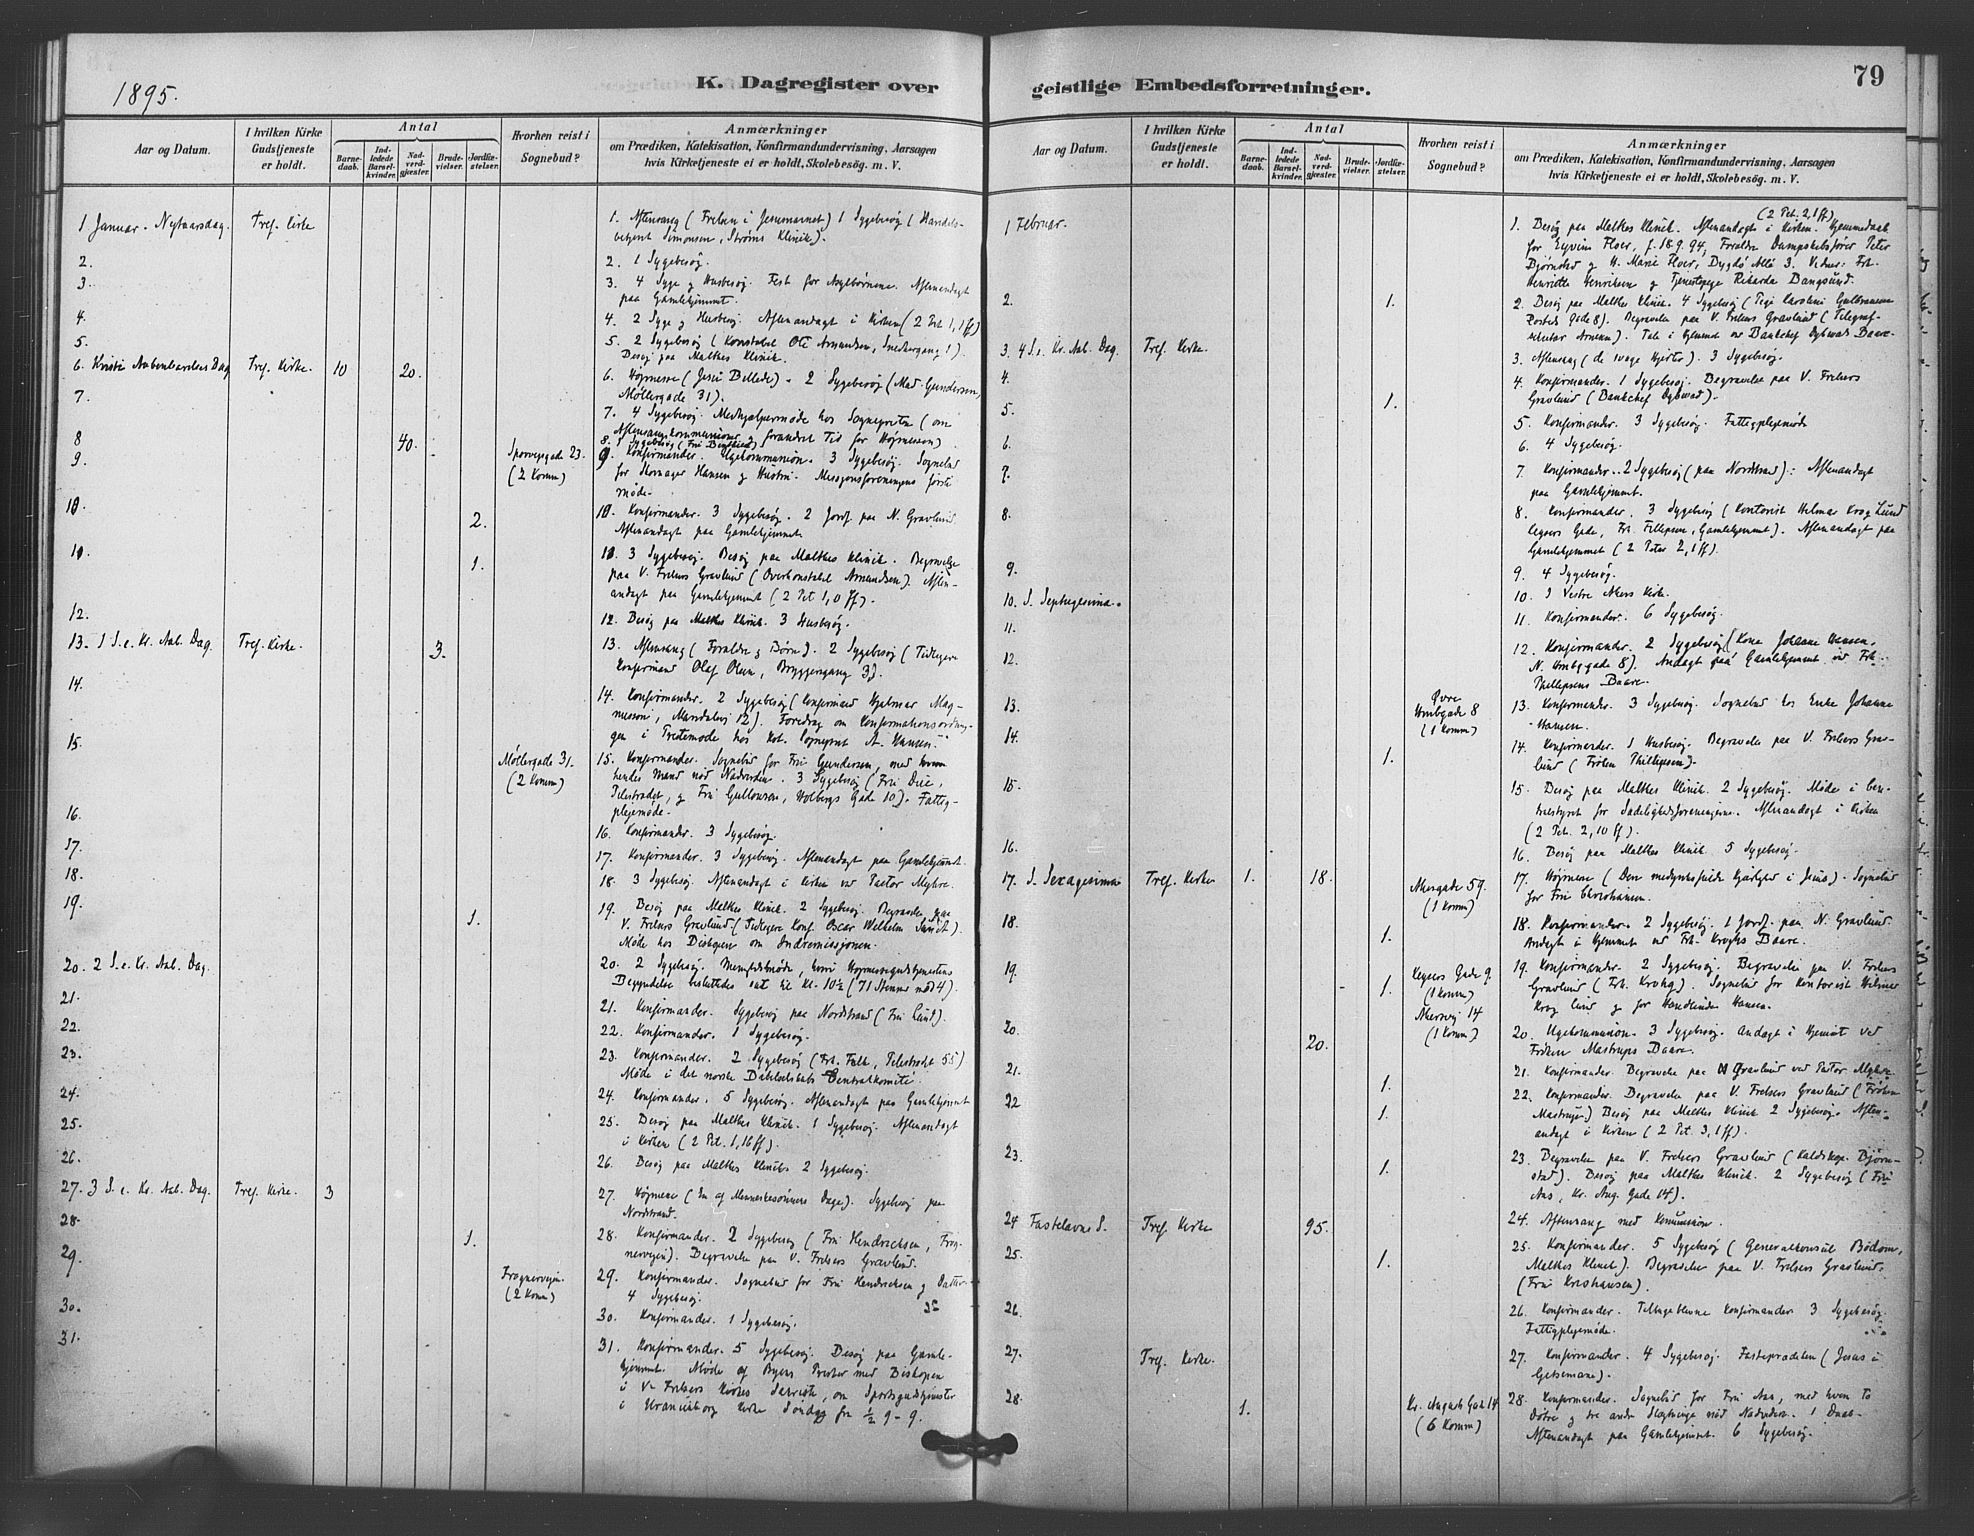 1895.
K. Dagregister over
Aar og Datum.
I hvilken Kirke
Gudstjeneste
er holdt.
Antal
Barne-
daab.
Ind-
ledede
Barsel-
kvinder.
Nad-
verd-
gjæster.
Brude-
vielser.
Jordfæ-
stelser.
Hvorhen reist i
Sognebud?
Anmærkninger
om Prædiken, Katekisation, Konfirmandundervisning, Aarsagen
hvis Kirketjeneste ei er holdt, Skolebesög. m. V.
1 Januar. Nytaarsdag. Tref. Kirke
1. Aftensang (Frelsen i Jesunavnet) 1 Sygebesøg (Handels-
betjent Simonsen, Strøms Klinik).
2. 2. 1 Sygebesøg.
3. 3. 4 Syge og Husbesøg. Fest for Asylbørnene. Aftenandagt
paa Gamlehjemmet.
4. 4. 2 Syge og Husbesøg. Aftenandagt i Kirken (2 Pet 1, 1 ff)
5. 5. 2 Sygebesøg (Konstabel Ole Amundsen, Snedkergang 1).
Besøg paa Malthes Klinik.
6. Kristi Aabenbarelses Dag Tref. Kirke. 10 20.
6. Højmesse (Jesu Billede). 2 Sygebesøg (Mad. Gundersen,
Møllergade 31).
7. 7. 4 Sygebesøg. Medhjælpermøde hos Sognepresten (om
Aftensangskommunioner og forandret Tid for Højmessen)
8 40. 8. 1 Sygebesøg (Fru
9. Sporvejsgade 23.
(2 Komm)
9. Konfirmander. Ugekommunion. 3 Sygebesøg. Sognebud
for Hansen og Hustru. Missionsforeningens første
Møde.
10. 2. 10. Konfirmander. 3 Sygebesøg. 2 Jordf. paa N. Gravlund.
Aftenandagt paa Gamlehjemmet.
11. 1. 11. 3 Sygebesøg. Besøg paa Malthes Klinik. Begravelse
paa V. Frelsers Gravlund (Overkonstabel Amundsen). Aften-
andagt paa Gamlehjemmet (2 Pet 1, 0 ff).
12. 12. Besøg paa Malthes Klinik. 3 Husbesøg.
13. 1 S. e. Kr. Aab. Dag. Tref. Kirke. 3.
13. Aftensang (Forældre og Børn). 2 Sygebesøg (Tidligere
Konfirmand Olaf Olsen, Bryggergang 3).
14. 14. Konfirmander. 2 Sygebesøg (Konfirmand Hjalmar Mag-
nussen, Maridalsvej 12). Foredrag om Konfirmationsordnin-
gen i Prestemøde hos Kst. Sogneprest A. Hansen.
15. Møllergade 31.
(2 Komm)
15. Konfirmander. Sognebud for Fru Gundersen, med hvem
hendes Mand nød Nadverden. 3 Sygebesøg (Fru Due,
Pilestrædet, og Fru Gullovsen, Holbergs Gade 10). Fattig-
plejemøde.
16. 16. Konfirmander. 3 Sygebesøg.
17. 17. Konfirmander. 3 Sygebesøg. Aftenandagt paa Gamlehjemmet.
18. 18. 3 Sygebesøg. Aftenandagt i Kirken ved Pastor Myhre.
19. 1. 19. Besøg paa Malthes Klinik. 2 Sygebesøg. Begravelse paa
V. Frelsers Gravlund (Tidligere Konf. Oscar Wilhelm
Møde hos Biskopen om Indremissjonen.
20. 2 S. e. Kr. Aab. Dag.
20. 2 Sygebesøg. Menighedsmøde, hvori Højmessegudstjenestens
Begyndelse besluttedes sat til Kl. 10½ (71 Stemmer mod 4).
21. 21. Konfirmander. Sygebesøg paa Nordstrand (Fru Lund).
22. 22. Konfirmander. 1 Sygebesøg.
23. 23. Konfirmander. 2 Sygebesøg (Frk. Falk, Pilestrædet 55)
Møde i det norske Bibelselskabs Centralkomité.
24. 24. Konfirmander. 5 Sygebesøg. Aftenandagt paa Gamlehjemmet
25. 25. Besøg paa Malthes Klinik. 1 Sygebesøg. Aftenandagt
i Kirken (2 Pet. 1, 16 ff).
26. 26. Besøg paa Malthes Klinik. 2 Sygebesøg.
27. 3 S. e. Kr. Aab. Dag. Tref. Kirke. 3
27. Højmesse (En af Menneskesønnens Dage). Sygebesøg paa
Nordstrand.
28. 1. 28. Konfirmander. 2 Sygebesøg (Fru Hendricksen, Frog-
nervejen). Begravelse paa V. Frelsers Gravlund.
29. Frognervejen.
(2 Komm)
29. Konfirmander. Sognebud for Fru Hendricksen og Datter.
4 Sygebesøg.
30. 30. Konfirmander. 1 Sygebesøg.
31. 31. Konfirmander. 5 Sygebesøg. Besøg paa Gamle-
hjemmet. Møde af Byens Prester med Biskopen
i Vor Frelsers Kirkes Sakristi, om Sportsgudstjenester
i Uranienborg Kirke Søndage fra ½ 9 - 9.
geistlige Embedsforretninger.
79
Aar og Datum.
I hvilken Kirke
Gudstjeneste
er holdt.
Antal
Barne-
daab.
Ind-
ledede
Barsel-
kvinder.
Nad-
verd-
gjæster.
Brude-
vielser.
Jordfæ-
stelser.
Hvorhen reist i
Sognebud?
Anmærkninger
om Prædiken, Katekisation, Konfirmandundervisning, Aarsagen
hvis Kirketjeneste ei er holdt, Skolebesög. m. V.
(2 Pet. 2, 1 ff)
1 Februar. 1. Besøg paa Malthes Klinik. Aftenandagt i Kirken. Hjemmedaab
for Eyvin Floer, f. 18.9.94, Forældre Dampskibsfører Peter
Bjørnstad og H. Marie Floer, Bygdø Allé 3. Vidner: Frk.
Henriette Henriksen og Tjenestepige Rikarda Bangsund.
2. 1. 2. Besøg paa Malthes Klinik. 4 Sygebesøg (Pige Karoline Gulbransen
Rosteds Gade 8). Begravelse paa V. Frelsers Gravlund (Telegraf-
sekretær Arnesen). Tale i Hjemmet ved Bankchef Dybwads Baare.
3. 4 S. e. Kr. Aab. Dag. Tref. Kirke.
3. Aftensang (de svage Hjerter). 3 Sygebesøg.
4. 1. 4. Konfirmander. 1 Sygebesøg. Begravelse paa V. Frelsers
Gravlund (Bankchef Dybwad).
5. 5. Konfirmander. 3 Sygebesøg. Fattigplejemøde
6. 6. 4 Sygebesøg.
7. 7. Konfirmander. 2 Sygebesøg (paa Nordstrand). Aftenandagt
paa Gamlehjemmet.
8. 8. Konfirmander. 3 Sygebesøg (Kontorist Hilmar Krog Lund
Keysers Gade, Frk. Fillipsen, Gamlehjemmet). Aftenandagt paa
Gamlehjemmet (2 Peter 2, 1 ff).
9. 9. 4 Sygebesøg.
10. S. Septuagesima. 10. I Vestre Akers Kirke.
11. 11. Konfirmander. 6 Sygebesøg.
12. 12. Konfirmander. 2 Sygebesøg (Kone Johanne Hansen,
N. Hmbggade 8). Andagt paa Gamlehjemmet ved Frk.
Phillipsens Baare.
13. Øvre
Hmbgade 8
(1 Komm)
13. Konfirmander. 3 Sygebesøg. Sognebud hos Enke Johanne
Hansen.
14. 1. 14. Konfirmander. 1 Husbesøg. Begravelse paa V. Frelsers Grav-
lund (Frøken Phillipsen).
15. 15. Besøg paa Malthes Klinik. 2 Sygebesøg. Møde i Cen-
tralstyret for Sædelighedsforeningerne. Aftenandagt i Kirken
(2 Pet. 2, 10 ff).
16. 16. Besøg paa Malthes Klinik. 5 Sygebesøg.
17. S. Sexagesima Tref. Kirke 1. 18. Akersgade 59.
(1 Komm)
17. Højmesse (Den medynksfulde Kjærlighed i Jesus). Sognebud
for Fru Christiansen.
18. 1. 18. Konfirmander. 2 Sygebesøg. 1 Jordf. paa N. Gravlund.
Andagt i Hjemmet ved Frk. Kroghs Baare.
19. 1. Keysers Gade 9.
(1 Komm)
Akersvej 14
(1 Komm)
19. Konfirmander. 2 Sygebesøg. Begravelse paa V. Frelsers
Gravlund (Frk. Krohg). Sognebud for Kontorist Hilmar
Krog Lund og for Handlende Hansen.
20. 20. 20. Ugekommunion. 3 Sygebesøg. Andagt i Hjemmet ved
Frøken Mastrups Baare.
21. 1. 21. Konfirmander. Begravelse paa N Gravlund ved Pastor Myhre.
22 1. 22. Konfirmander. Begravelse paa V. Frelsers Gravlund (Frøken
Mastrup) Besøg paa Malthes Klinik. 2 Sygebesøg. Aften-
andagt i Kirken (2 Pet 3, 1 ff).
23. 1. 23. Begravelse paa V. Frelsers Gravlund (Kaldskap. Bjørn-
stad). Besøg paa Malthes Klinik. 2 Sygebesøg (Fru
Aas, Kr. Aug. Gade 14).
24 Fastelavns S. Tref. Kirke 95. 24. Aftensang med Kommunion.
25. 1. 25. Konfirmander. 5 Sygebesøg (Generalkonsul Bødom,
Malthes Klinik). Begravelse paa V. Frelsers Gravlund.
(Fru Kristiansen).
26. 26. Konfirmander. Tilbageblevne Konfirmander 3 Sygebesøg.
Fattigplejemøde.
27. Tref. Kirke. 27. Konfirmander. 4 Sygebesøg. Fasteprædiken (Jesus i
Getsemane).
28. 1. Kr. Augusts Gade 14
(6 Komm)
28. Konfirmander. Sognebud for Fru Aas, med hvem to
Døtre og tre andre Slægtninge nød Nadverden. 1 Daab.
Aftenandagt paa Gamlehjemmet. 6 Sygebesøg.